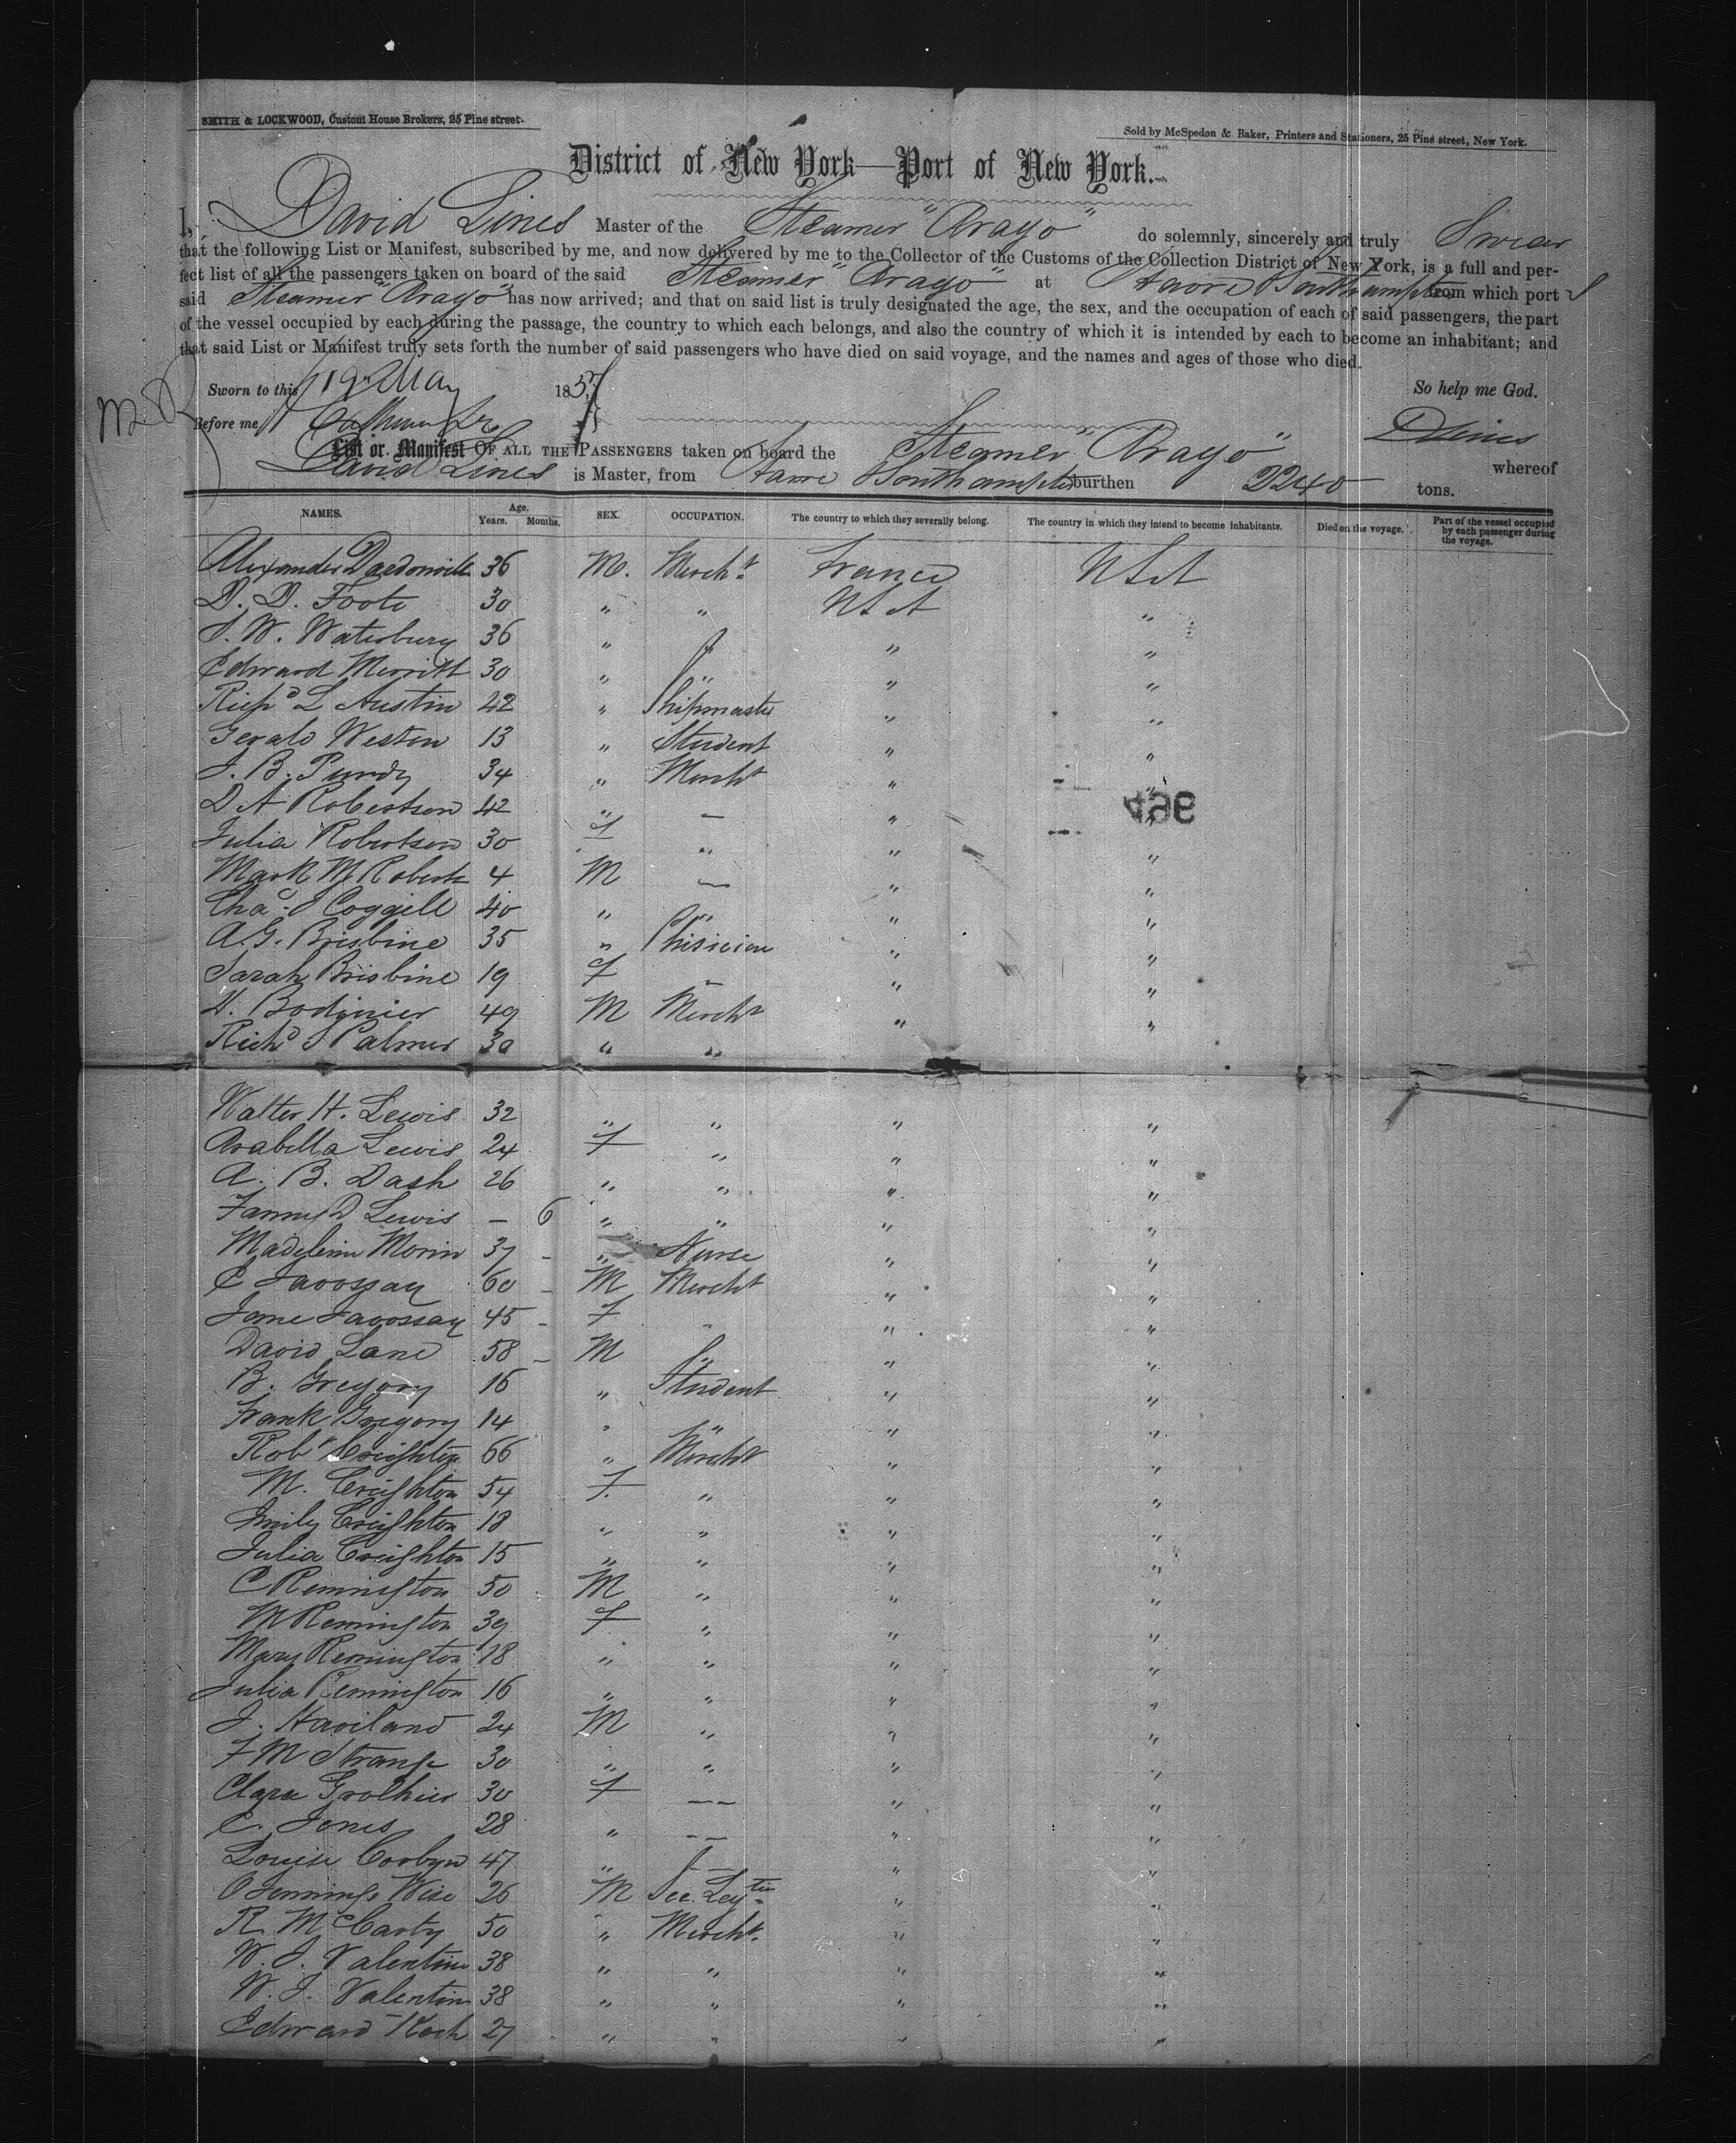 SMITH & LOCKWOOD, Custom House Brokers, 25 Pine street.
Sold by McSpedon & Baker, Printers and Stationers, 25 Pine street, New York.
District of New York—Port of New York.
I, David Lines Master of the Steamer "Arago" do solemnly, sincerely and truly Swear
that the following List or Manifest, subscribed by me, and now delivered by me to the Collector of the Customs of the Collection District of New York, is a full and per-
fect list of all the passengers taken on board of the said Steamer "Arago" at Havre Southampton from which port
said Steamer "Arago" has now arrived; and that on said list is truly designated the age, the sex, and the occupation of each of said passengers, the part
of the vessel occupied by each during the passage, the country to which each belongs, and also the country of which it is intended by each to become an inhabitant; and
that said List or Manifest truly sets forth the number of said passengers who have died on said voyage, and the names and ages of those who died.
Sworn to this 19 May 1857 So help me God.
Before me DLines
List or Manifest OF ALL THE PASSENGERS taken on board the Steamer "Arago" whereof
David Lines is Master, from Havre Southampton burthen 2240 tons.
NAMES. Age. Years. Months. SEX. OCCUPATION. The country to which they severally belong. The country in which they intend to become inhabitants. Died on the voyage. Part of the vessel occupied by each passenger during the voyage.
Alexander 36 M. Mercht France USA
D. D. Foote 30 " " USA "
S. W. Waterbury 36 " " " "
Edward Merritt 30 " " " "
Richd L Austin 42 " Shipmaster " "
Gerald Weston 13 " Student " "
J. B. Purdy 34 " Mercht " "
D A Robertson 42 " — " "
496
Julia Robertson 30 f " " "
Mark M Roberts 4 M — " "
Chas J Coggill 40 " " " "
A. G. Brisbine 35 " Phisician " "
Sarah Brisbine 19 f — " "
V. Bodinier 49 M Mercht " "
Richd S Palmer 30 " " " "
Walter H. Lewis 32 " " " "
Arabella Lewis 24 f " " "
A. B. Dash 26 " " " "
Fanny D Lewis — 6 " " " "
Madeleine Morin 37 - " Nurse " "
C Javossay 60 - M Mercht " "
Jane Javossay 45 - f - " "
David Lane 58 - M " " "
B. Gregory 16 " Student " "
Frank Gregory 14 " " " "
Robt Creighton 66 " Mercht " "
M. Creighton 54 f. " " "
Emily Creighton 18 " " " "
Julia Creighton 15 " " " "
C Remington 50 M " " "
M Remington 39 f " " "
Mary Remington 18 " " " "
Julia Remington 16 " " " "
J. Haviland 24 M " " "
F M Strange 30 " " " "
Clara 30 f — — " "
C. Jones 28 " — — " "
Louise Corbyn 47 " — " "
O Jennings Wise 26 M Sec. Legtn " "
R. McCarty 50 " Mercht. " "
W. J. Valentine 38 " " " "
W. J. Valentine 38 " " " "
Edward Koch 27 " " " "